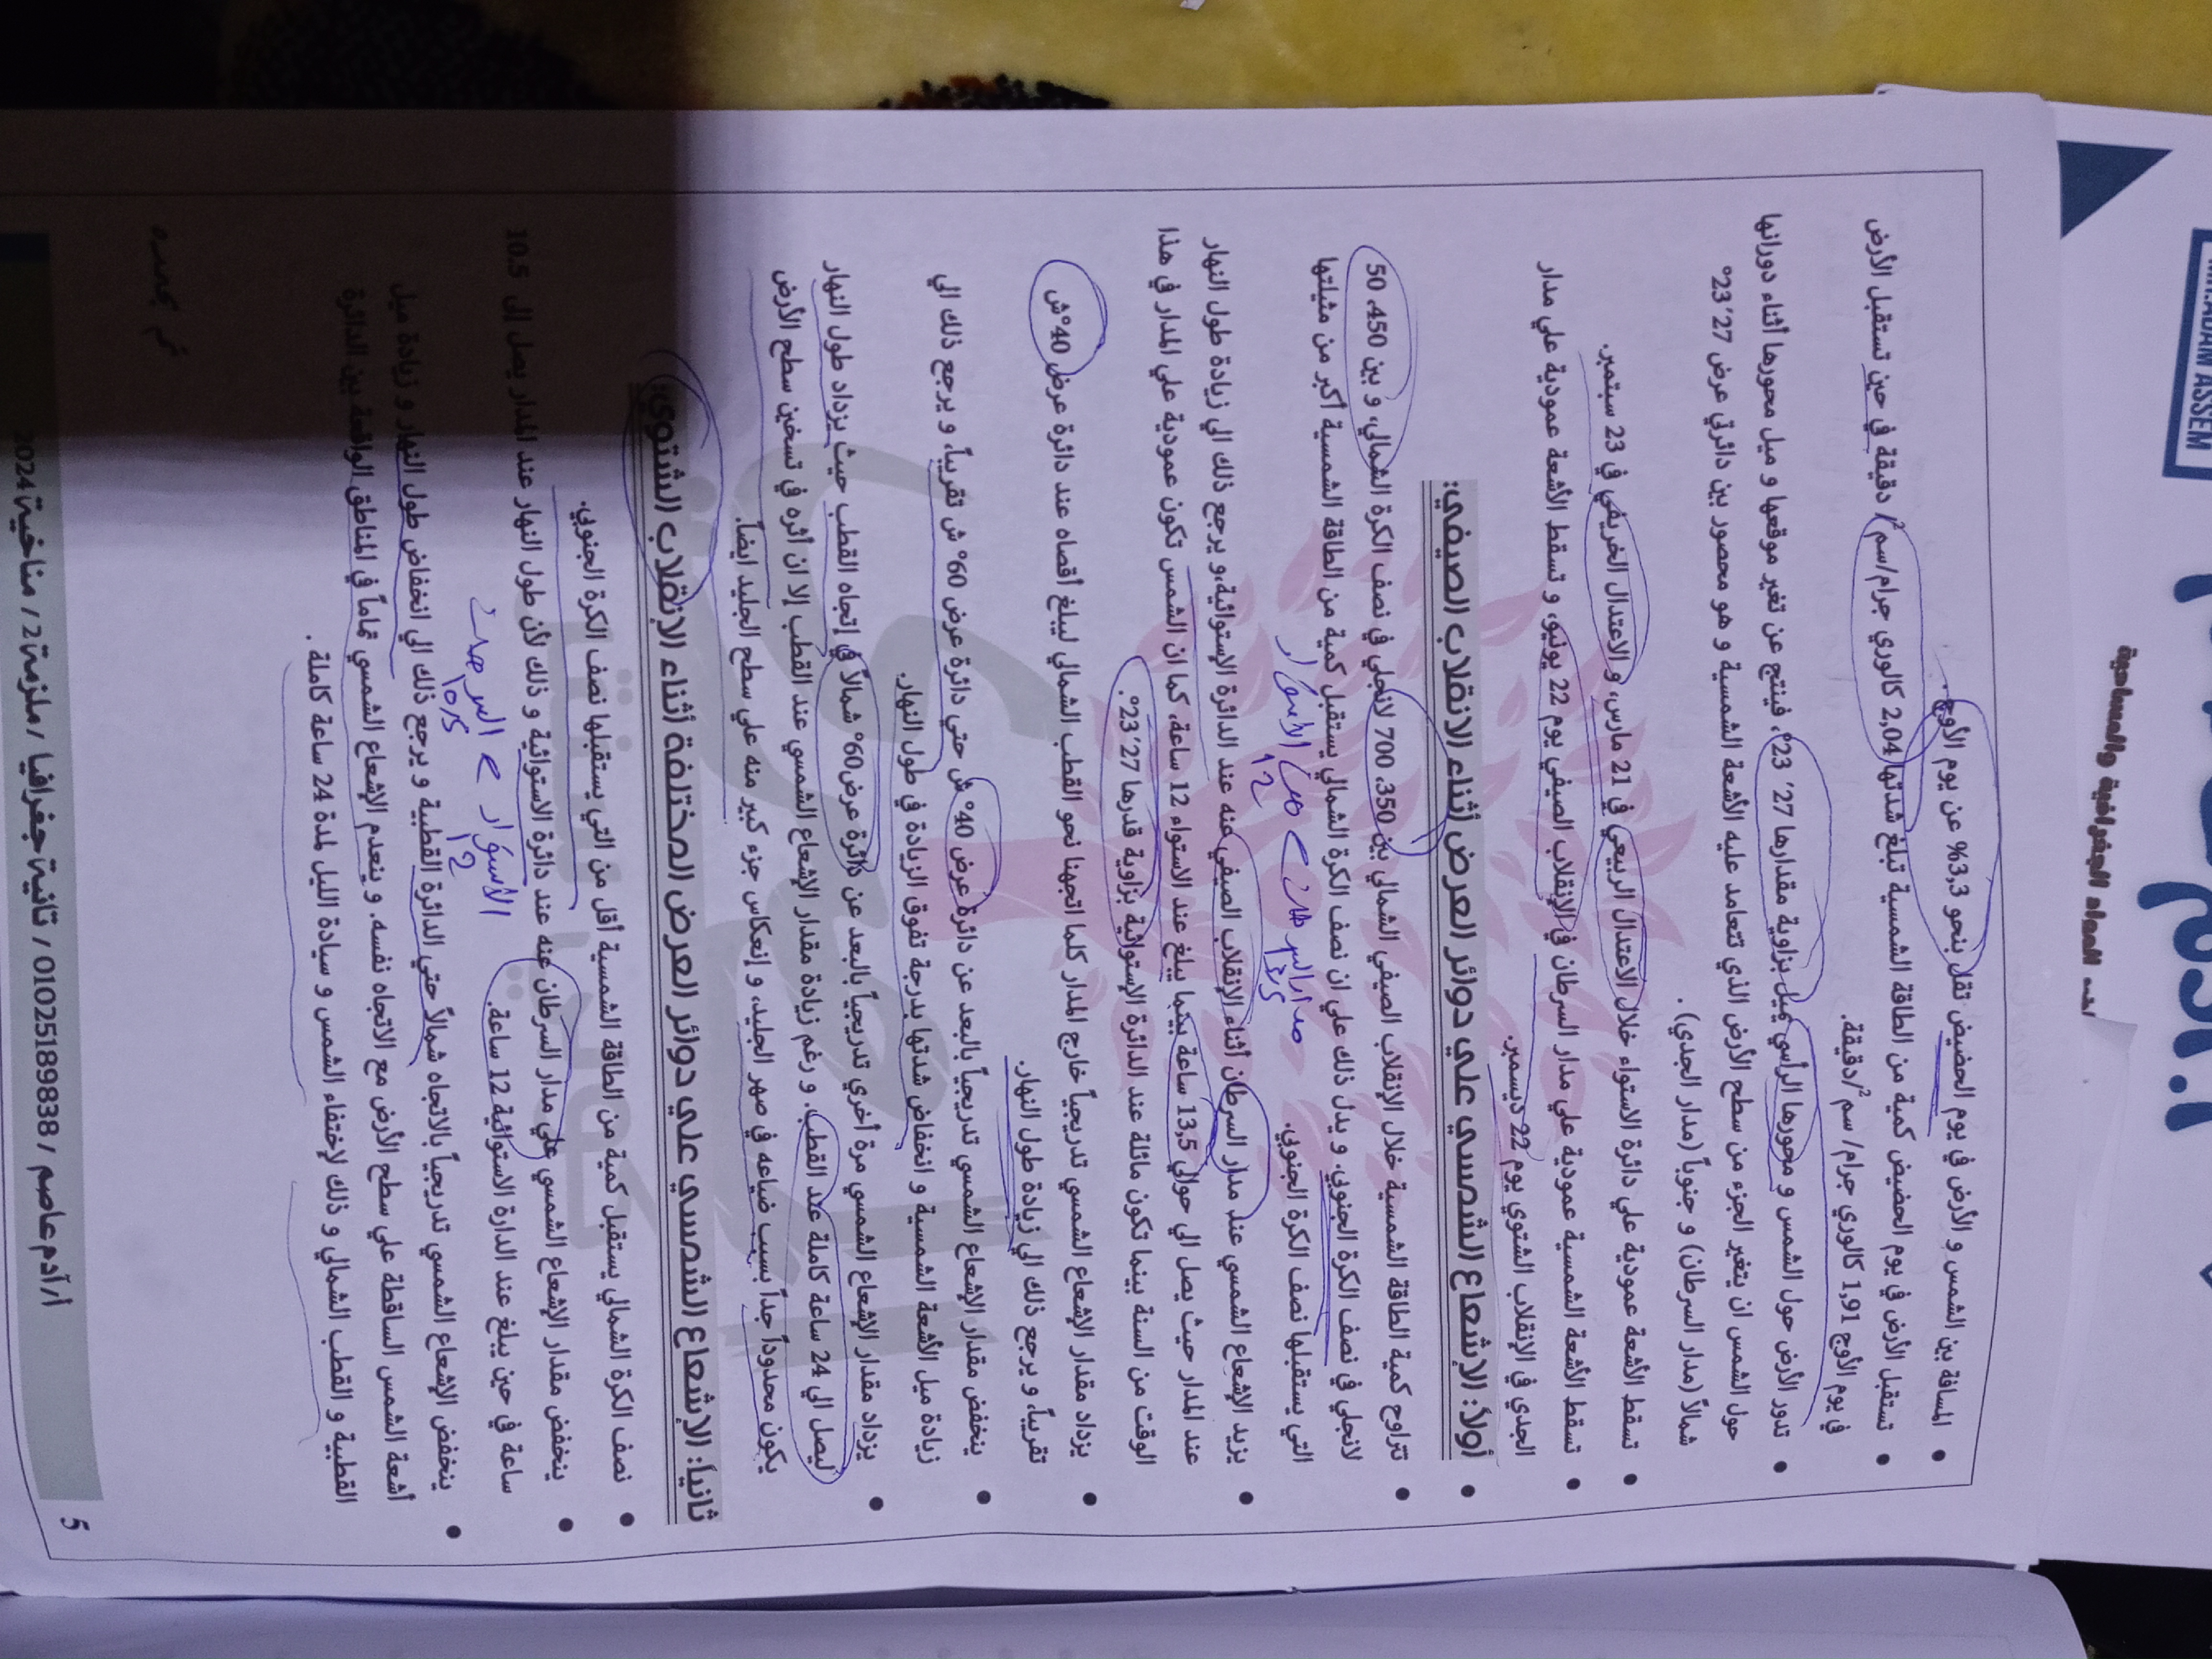 MR.ADAM ASSEM
المسافة بين الشمس و الأرض في يوم الحضيض تقل بنحو 3,3% عن يوم الأوج.
تستقبل الأرض في يوم الحضيض كمية من الطاقة الشمسية تبلغ شدتها 2,04 كالوري جرام/سم²/ دقيقة في حين تستقبل الأرض
في يوم الأوج 1,91 كالوري جرام/ سم²/دقيقة.
تدور الأرض حول الشمس و محورها الرأسي يميل بزاوية مقدارها 27′ 23°، فينتج عن تغير موقعها و ميل محورها أثناء دورانها
حول الشمس ان يتغير الجزء من سطح الأرض الذي تتعامد عليه الأشعة الشمسية و هو محصور بين دائرتي عرض 27′ 23°
شمالاً (مدار السرطان) و جنوباً (مدار الجدي).
تسقط الأشعة عمودية علي دائرة الاستواء خلال الاعتدال الربيعي في 21 مارس، و الاعتدال الخريفي في 23 سبتمبر.
تسقط الأشعة الشمسية عمودية علي مدار السرطان في الإنقلاب الصيفي يوم 22 يونيو، و تسقط الأشعة عمودية علي مدار
الجدي في الإنقلاب الشتوي يوم 22 ديسمبر.
أولاً: الإشعاع الشمسي علي دوائر العرض أثناء الانقلاب الصيفي:
تتراوح كمية الطاقة الشمسية خلال الإنقلاب الصيفي الشمالي بين 350، 700 لانجلي في نصف الكرة الشمالي، و بين 450، 50
لانجلي في نصف الكرة الجنوبي. و يدل ذلك علي ان نصف الكرة الشمالي يستقبل كمية من الطاقة الشمسية أكبر من مثيلتها
التي يستقبلها نصف الكرة الجنوبي.
13.5 12
يزيد الإشعاع الشمسي عند مدار السرطان أثناء الإنقلاب الصيفي عنه عند الدائرة الإستوائية،و يرجع ذلك الي زيادة طول النهار
عند المدار حيث يصل الي حوالي 13,5 ساعة بينما يبلغ عند الاستواء 12 ساعة، كما ان الشمس تكون عمودية علي المدار في هذا
الوقت من السنة بينما تكون مائلة عند الدائرة الإستوائية بزاوية قدرها 27′ 23°.
يزداد مقدار الإشعاع الشمسي تدريجياً خارج المدار كلما اتجهنا نحو القطب الشمالي ليبلغ أقصاه عند دائرة عرض 40°ش
تقريباً، و يرجع ذلك الي زيادة طول النهار.
ينخفض مقدار الإشعاع الشمسي تدريجياً بالبعد عن دائرة عرض 40° ش حتي دائرة عرض 60° ش تقريباً، و يرجع ذلك الي
زيادة ميل الأشعة الشمسية و انخفاض شدتها بدرجة تفوق الزيادة في طول النهار.
يزداد مقدار الإشعاع الشمسي مرة أخري تدريجياً بالبعد عن دائرة عرض60° شمالاً في إتجاه القطب حيث يزداد طول النهار
ليصل الي 24 ساعة كاملة عند القطب. و رغم زيادة مقدار الإشعاع الشمسي عند القطب إلا ان أثره في تسخين سطح الأرض
يكون محدوداً جداً بسبب ضياعه في صهر الجليد، و إنعكاس جزء كبير منه علي سطح الجليد ايضاً.
ثانياً: الإشعاع الشمسي علي دوائر العرض المختلفة أثناء الإنقلاب الشتوي:
نصف الكرة الشمالي يستقبل كمية من الطاقة الشمسية أقل من التي يستقبلها نصف الكرة الجنوبي.
ينخفض مقدار الإشعاع الشمسي علي مدار السرطان عنه عند دائرة الاستوائية و ذلك لأن طول النهار عند المدار يصل إلى 10.5
ساعة في حين يبلغ عند الدارة الاستوائية 12 ساعة.
12 10.5
ينخفض الإشعاع الشمسي تدريجياً بالاتجاه شمالاً حتي الدائرة القطبية و يرجع ذلك الي انخفاض طول النهار و زيادة ميل
أشعة الشمس الساقطة علي سطح الأرض مع الاتجاه نفسه. و ينعدم الإشعاع الشمسي تماماً في المناطق الواقعة بين الدائرة
القطبية و القطب الشمالي و ذلك لإختفاء الشمس و سيادة الليل لمدة 24 ساعة كاملة.
أ/ آدم عاصم / 01025189838 / ثانية جغرافيا / ملزمة2 / مناخية 2024
5